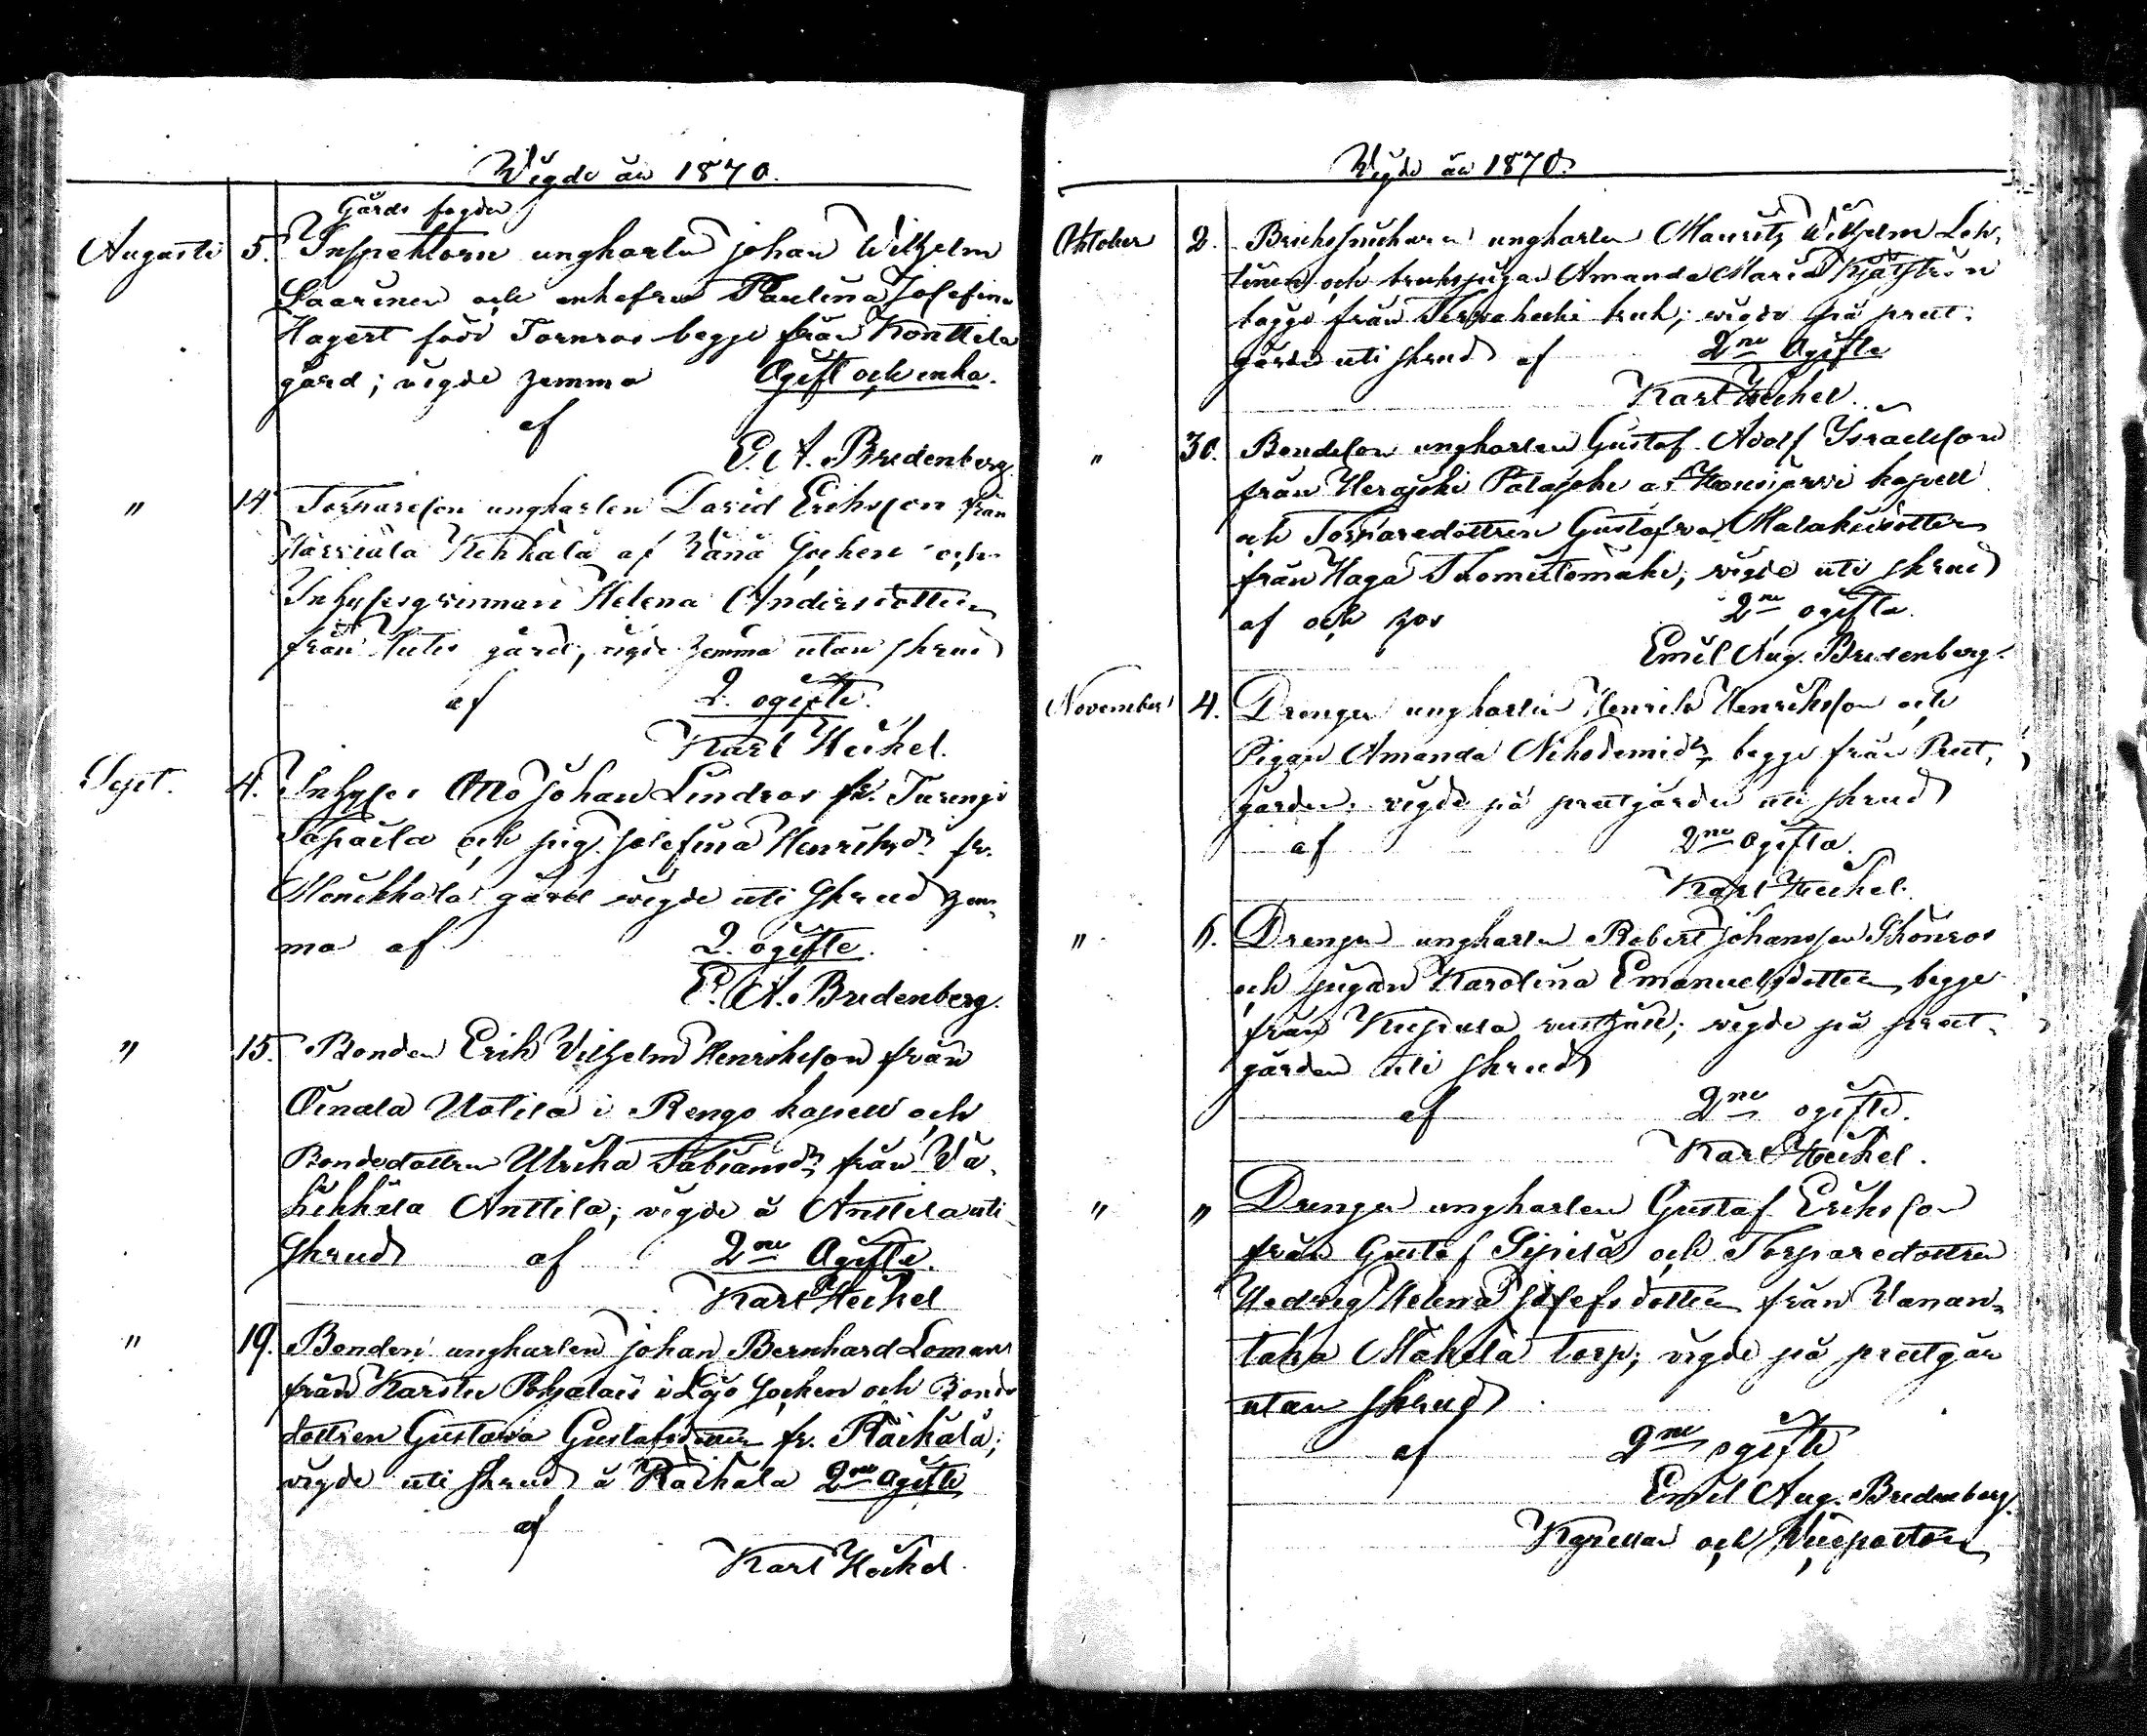 Wigde år 1870.
Gårds fogden
Augusti 5. Inspektorn ungkarlen Johan Wilhelm
Saarinen och enkefru Paulina Josefina
Hagert född Tornroos begge från Konttila
gård; vigde hemma Ogift och enka.
af
E. A. Bredenberg
" 14 Torpareson ungkarlen David Eriksson från
Harviala Kekkala af Vånå Socken och
Inhyseqvinnan Helena Andersdotter
från gård, vigde hemma utan skrud
af 2 ogifte.
Karl Heikel.
Sept. 4. Inhyses Otto Johan Lindroos fr. Turengi
Tapaila och pig. Josefina Henriksdr fr.
Monikkala gård vigde uti skrud hem-
ma af 2 ogifte.
E. A. Bredenberg.
" 15. Bonden Erik Vilhelm Henriksson från
Oinala Uotila i Rengo kapell och
Bondedottren Ulrika Fabiansdr från Vä-
hikkälä Anttila; vigde å Anttila uti
skrud af 2ne Ogifte.
Karl Heikel
" 19. Bonden ungkarlen Johan Bernhard Loman
från Karstu Pohjalais i Lojo Socken och Bonde
dottren Gustava Gustafsdotter fr. Räikälä;
vigde uti skrud å Räikälä 2ne Ogifte
af
Karl Heikel.
Wigde år 1870.
Oktober 2. ungkarlen Mauritz Wilhelm Leh-
tinen och brukspigan Amanda Maria
bägge från Tervakoski bruk; vigde på prest-
gården uti skrud af 2ne Ogifte
Karl Heikel.
" 30. Bondeson ungkarlen Gustaf Adolf Israelsson
från Herajoki Palajoki af Hausjärvi kapell
och Torparedottren Gustafva Malakiasdotter
från Haga Tuomistomäki; vigde uti skrud
af och hos 2ne ogifta.
Emil Aug. Bredenberg.
November 4. Drengen ungkarlen Henrik Henriksson och
Pigan Amanda Nikodemidr begge från Prest-
gården. vigde på prestgården uti skrud
af 2ne Ogifta.
Karl Heikel.
" 6. Drengen ungkarlen Robert Johansson Skönroos
och pigan Karolina Emanuelsdotter begge
från rusthåll; vigde på prest-
gården uti skrud
af 2ne ogifte.
Karl Heikel.
" " Drengen ungkarlen Gustaf Eriksson
från Gustaf Sipilä och Torparedottren
Hedvig Helena Josefsdotter från Vanan-
taka Mäkelä torp; vigde på prestgår
utan skrud
af 2ne ogifte
Emil Aug. Bredenberg.
Kapellan och Vicepastor